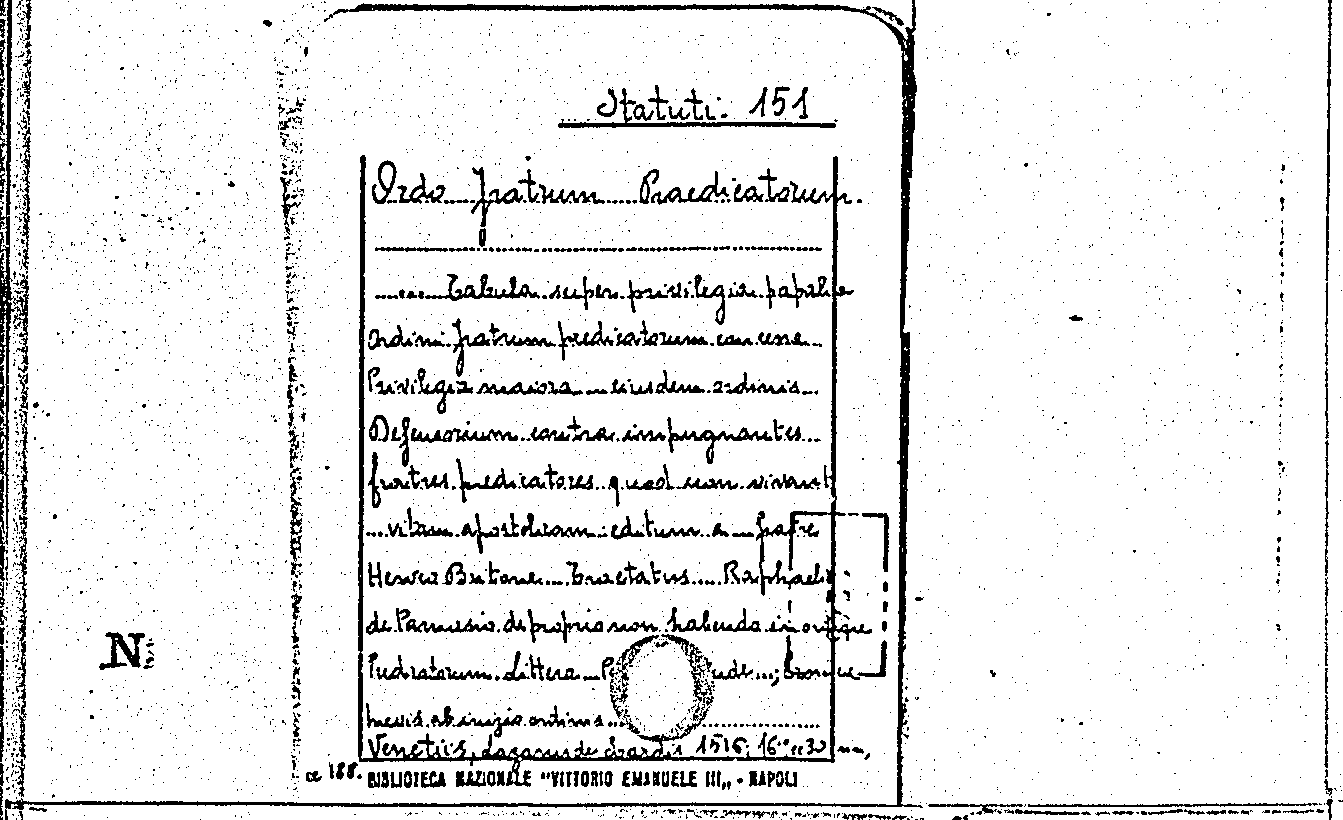 Statuti. 151
Ordo Fratrum Praedicatorum.
Tabula super privilegia papalia
ordini fratrum predicatorum concessa
Privilegia maiora eiusdem ordinis
Defensorium contra impugnantes
fratres predicatores quod non vivant
vitam apostolicam: editum a fratre
Herveo Britone Tractatus Raphaelis
de Pornasio de proprio non habendo in ordine
Predicatorum. Littera
brevis ab inizio ordinis
Venetiis, Lazarus de Soardis 1516; 16°
cc 188.
BIBLIOTECA NAZIONALE "VITTORIO EMANUELE III" - NAPOLI
N